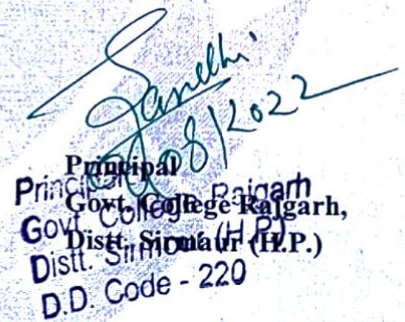 08/2022
Principal
Govt. College Rajgarh,
Distt. Sirmaur (H.P.)
Principal
Govt. College Rajgarh
Distt. Sirmour (H.P.)
D.D. Code - 220